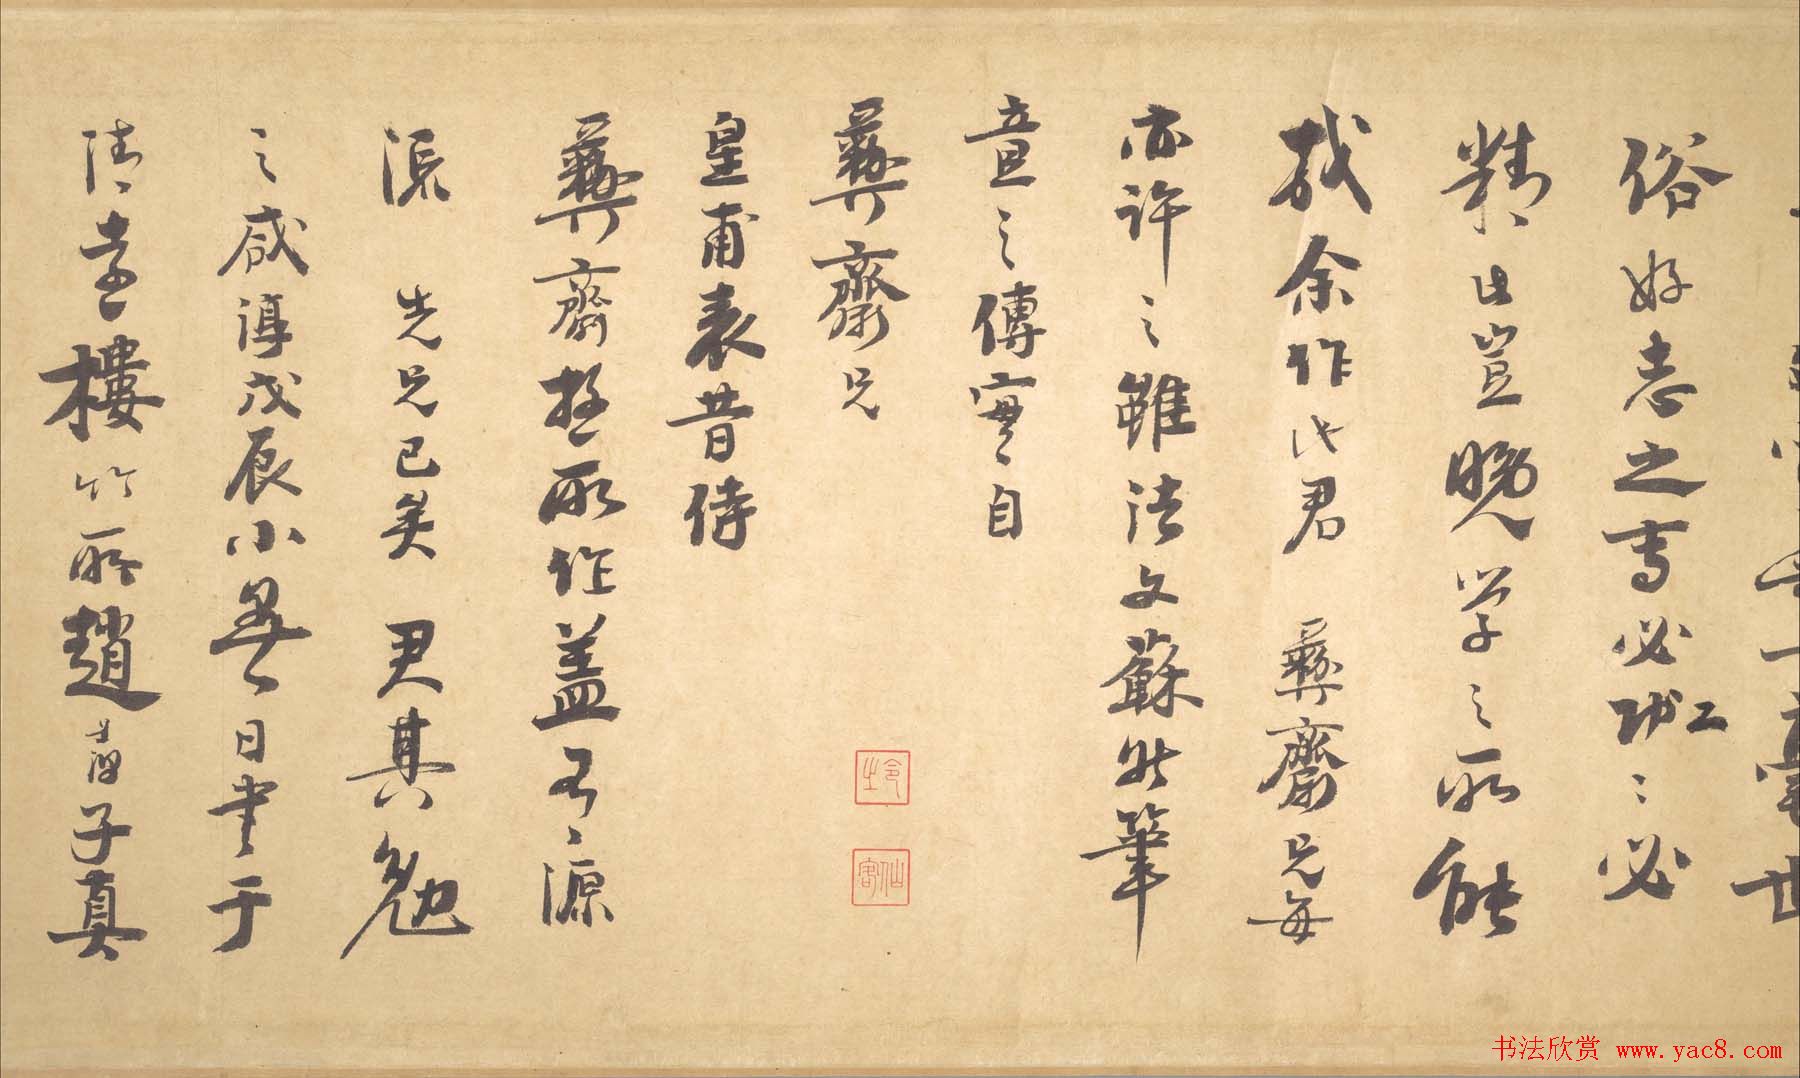 俗好志之專必功工〻必
精此豈晚学之所能
哉余作此君 彝齋兄每
亦許之雖法文蘇然筆
意之傳實自
彝齋兄
皇甫表昔侍
彝齋 所作盖有源
派 先兄已矣 君其勉
之咸淳戊辰小 日書于
清 樓竹所趙孟淳子真
仙客
书法欣赏 www.yac8.com